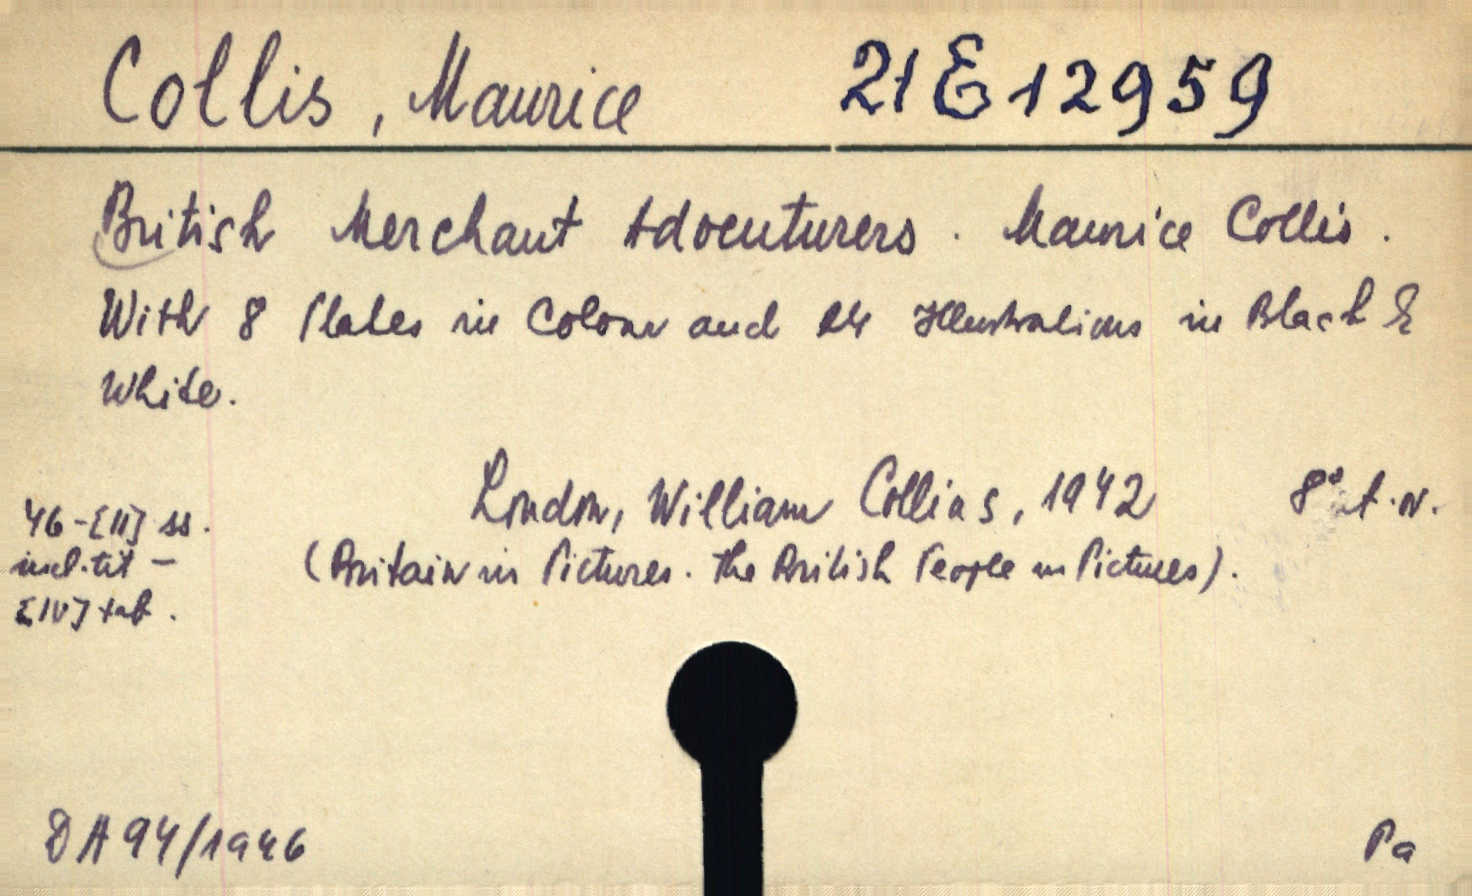 Collis, Maurice 21 E 12959
British Merchant Adventurers. Maurice Collis.
With 8 Plates in Colour and 24 Illustrations in Black &
White.
London, William Collins, 1942 8°
46-[II] ss.
incl. tit -
(Britain in Pictures. The British People in Pictures).
[IV] tab.
DA 94/1946
Pa